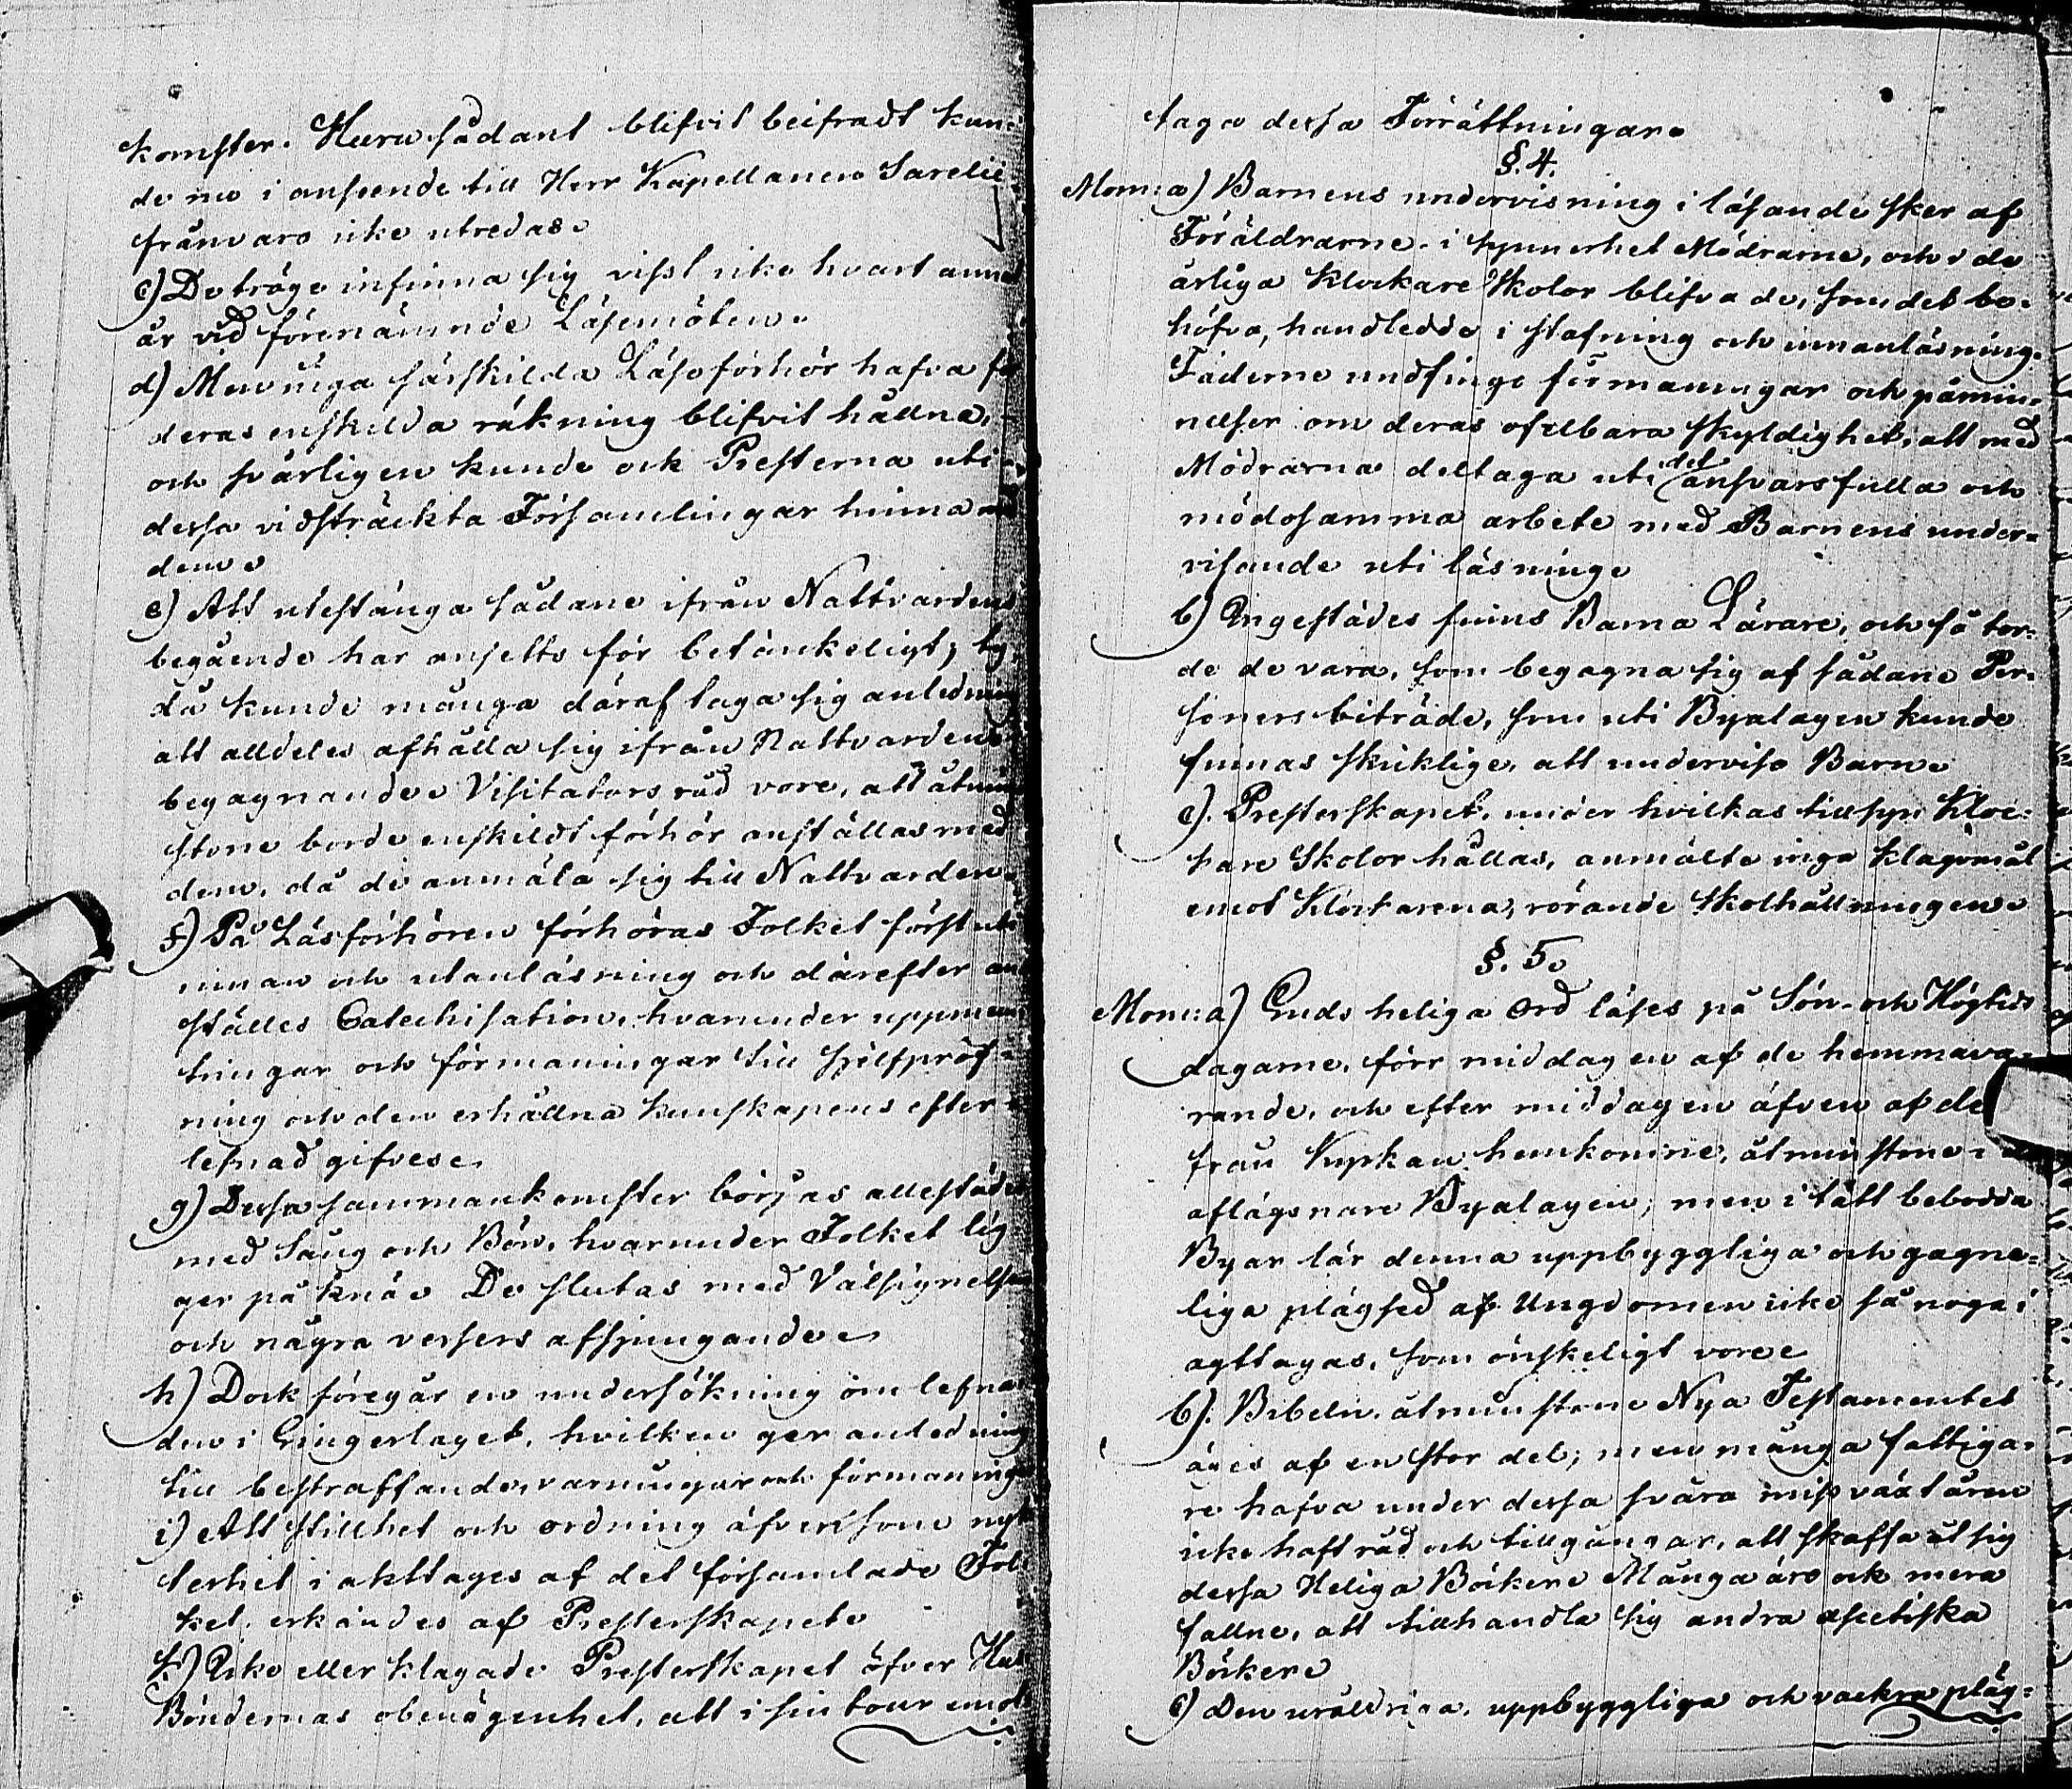 komster. Huru sådant blifvit beifradt kun-
de nu i anseende till Herr Kapellanen Sarelii
frånvaro icke utredas.
c) De tröge infinna sig visst icke hvart annat
år vid förenämnde Läsemöten.
d) Men inga särskilda Läseförhör hafva för
deras enskilda räkning blifvit hållna,
och svårligen kunde ock Presterna uti
dessa vidsträckta Församlingar hinna med
dem.
e) Att utestänga sådane ifrån Nattvardens
begående har ansetts för betänkeligt; ty
då kunde många däraf taga sig anledning
att alldeles afhålla sig ifrån Nattvardens
begagnande. Visitators råd vore, att åtmin
stone borde enskildt förhör anställas med
dem, då de anmäla sig till Nattvarden.
f) På Läsförhören förhöras Folket först uti
innan och utanläsning och därefter an
ställes Catechisation, hvarunder uppmun
tringar och förmaningar till sjelfpröf-
ning och den erhållna kunskapens efter-
lefnad gifves.
g) Dessa sammankomster börjas allestädes
med Sång och Bön, hvarunder Folket lig-
ger på knä. De slutas med Välsignelsen
och några versers afsjungande.
h) Dock föregår en undersökning om lefna
den i Gingerlaget, hvilken ger anledning
till bestraffande, varningar och förmaninga
i) Att stillhet och ordning äfvensom nyk
terhet iakttages af det församlade Fol
ket, erkändes af Presterskapet.
k) Icke eller klagade Presterskapet öfver Hus
Böndernas obenägenhet, att i sin tour emot
taga dessa Förrättningar.
§. 4.
Mom: a) Barnens undervisning i läsande sker af
Föräldrarne, i synnerhet Mödrarne, och i de
årliga Klockare Skolor blifva de, som det be-
höfva, handledde i stafning och innanläsning.
Fäderne undfingo förmaningar och påmin-
nelser om deras ofelbara skyldighet, att med
Mödrarna deltaga uti det ansvarsfulla och
mödosamma arbete med Barnens under-
visande uti läsning.
b) Ingestädes finns Barna Lärare, och få tor-
de de vara, som begagna sig af sådane Per-
soners biträde, som uti Byalagen kunde
finnas skicklige, att undervisa Barn.
c). Presterskapet, under hvilkas tillsyn Kloc-
kare Skolor hållas, anmälte inga klagomål
emot Klockarena, rörande Skolhållningen.
§. 5.
Mom: a) Guds heliga Ord läses på Sön- och Högtids
dagarne, förr middagen af de hemmava-
rande, och efter middagen äfven af de
från Kyrkan hemkomne, åtminstone i
aflägsnare Byalagen; men i tätt bebodda
Byar lär denna uppbyggliga och gagne-
liga plägsed af Ungdomen icke så noga i
agttagas, som önskeligt vore.
b). Bibeln, åtminstone Nya Testamentet
äges af en stor del; men många fattiga-
re hafva under dessa svåra missväxtåren
icke haft råd och tillgångar, att skaffa åt sig
dessa Heliga Böcker. Många äro ock mera
fallne, att tillhandla sig andra ascetiska
Böcker.
c) Den uråldriga, uppbyggliga och vackra pläg-